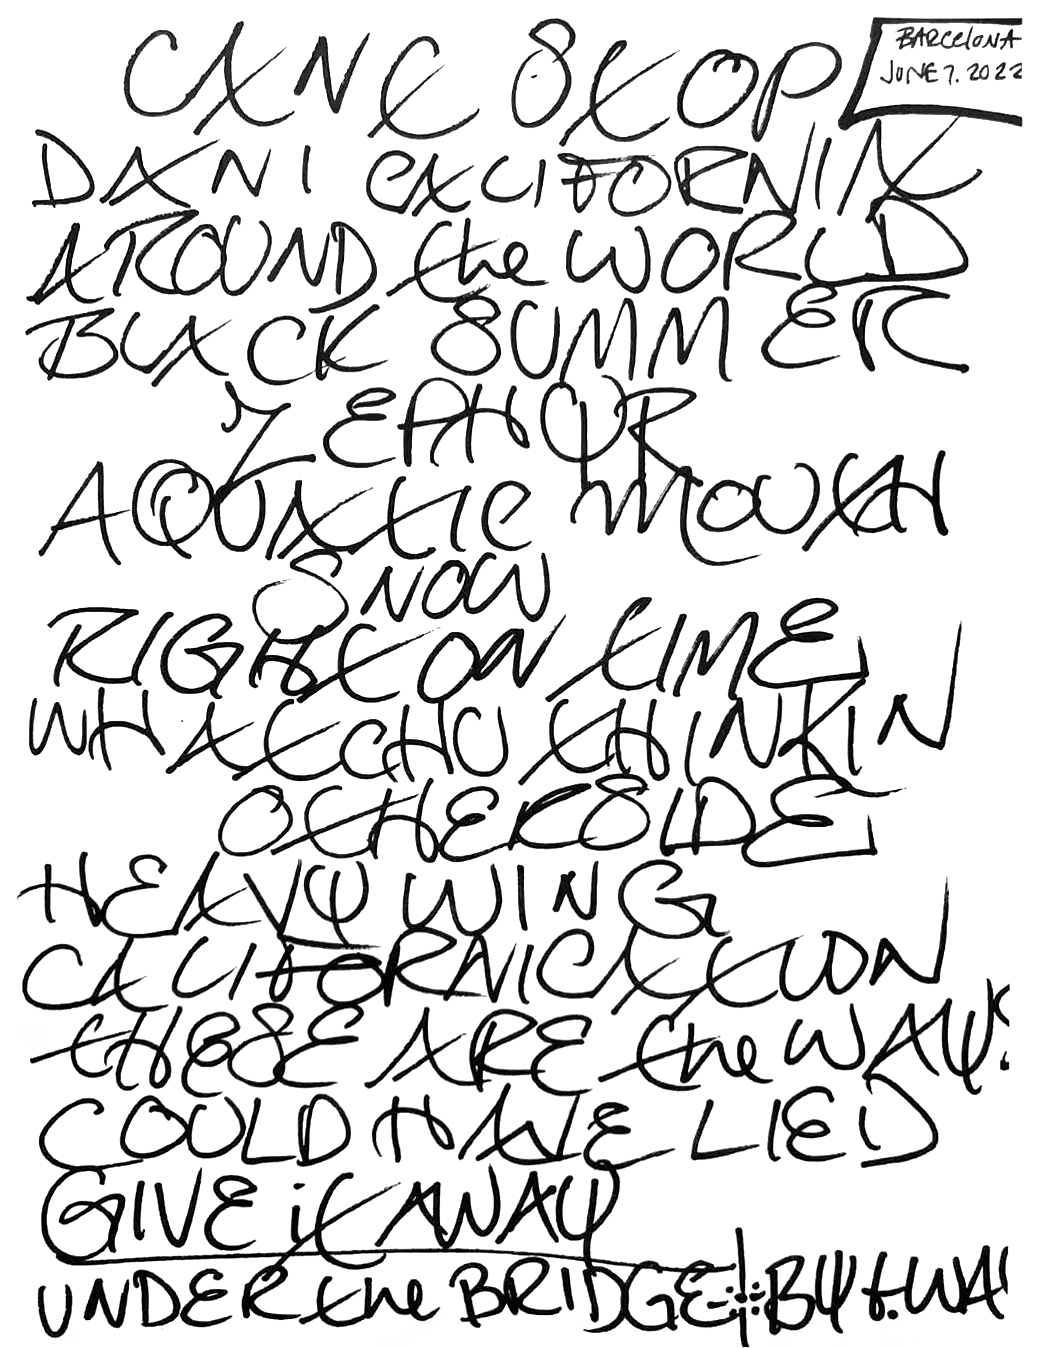 CAN'T STOP
BARCELONA
JUNE 7. 2022
DANI CALIFORNIA
AROUND the WORLD
BLACK SUMMER
ZEPHYR
AQUATIC MOUTH
SNOW
RIGHT ON TIME
WHATCHU THINKIN
OTHERSIDE
HEAVY WING
CALIFORNICATION
THESE ARE the WAYS
COULD HAVE LIED
GIVE iT AWAY
UNDER the BRIDGE BY t. WAY